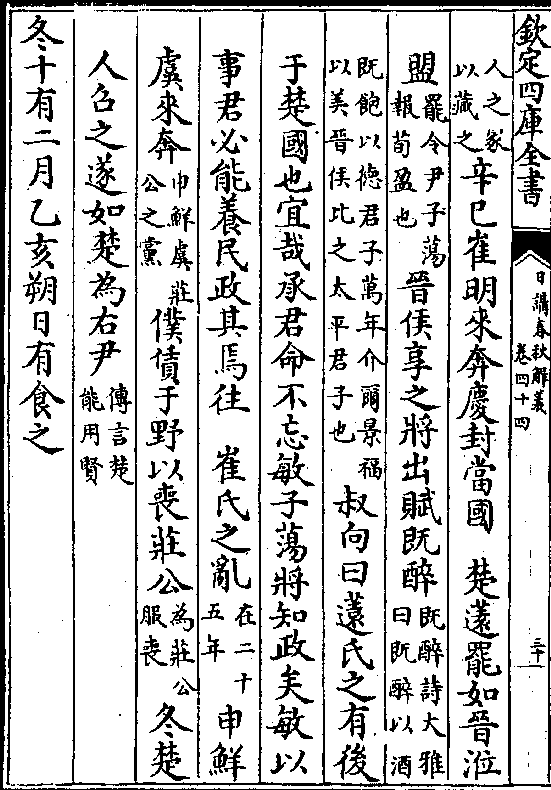 欽定四庫全書
日講春秋解義
卷四十四
三十一
人之冢以藏之辛巳崔明來奔慶封當國　楚薳罷如晉涖
盟罷令尹子蕩報荀盈也晉侯享之將出賦既醉既醉詩大雅曰既醉以酒
既飽以德君子萬年介爾景福以美晉侯比之太平君子也叔向曰薳氏之有後
于楚國也宜哉承君命不忘敏子蕩將知政矣敏以
事君必能養民政其焉往　崔氏之亂在二十五年申鮮
虞來奔申鮮虞莊公之黨僕賃于野以喪莊公為莊公服喪冬楚
人召之遂如楚為右尹傳言楚能用賢
冬十有二月乙亥朔日有食之